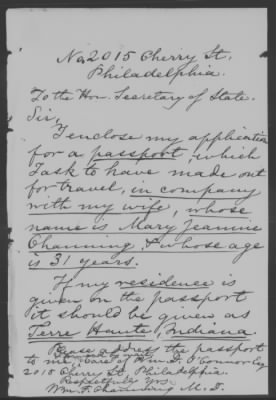 No. 2015 Cherry St.
Philadelphia.
To the Hon. Secretary of State.
Sir,
I enclose my application
for a passport, which
I ask to have made out
for travel, in company
with my wife, whose
name is Mary Jeanne
Channing, & whose age
is 31 years.
If my residence is
given on the passport
it should be given as
Terre Haute, Indiana.
Please address the passport
to me, Care of
2015 Cherry St. Philadelphia.
Respectfully Yrs.
Wm. F. Channing M. D.